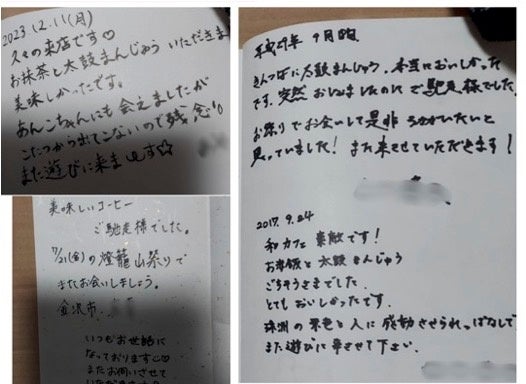 2023.12.11(月)
久々の来店です♡
お抹茶と太鼓まんじゅう いただきま
美味しかったです。
あんこちゃんにも会えましたが
こたつから出てこないので残念
また遊びに来ま す☆
美味しいコーヒー
ご馳走様でした。
7/21(金)の燈籠山祭りで
またお会いしましょう。
金沢市
いつもお世話に
なっております♡
またお伺いさせて
平成29年 9月
きんつばに太鼓まんじゅう、本当においしかった
です。突然 おじゃましたのにご馳走様でした。
お祭りでお会いして是非 うかがいたいと
思っていました! また来させていただきます!
2017.9.24
和カフェ 素敵です!
お抹茶と太鼓まんじゅう
ごちそうさまでした。
とてもおいしかったです。
珠洲の景色と人に感動させられっぱなしで
また遊びに来させて下さい。